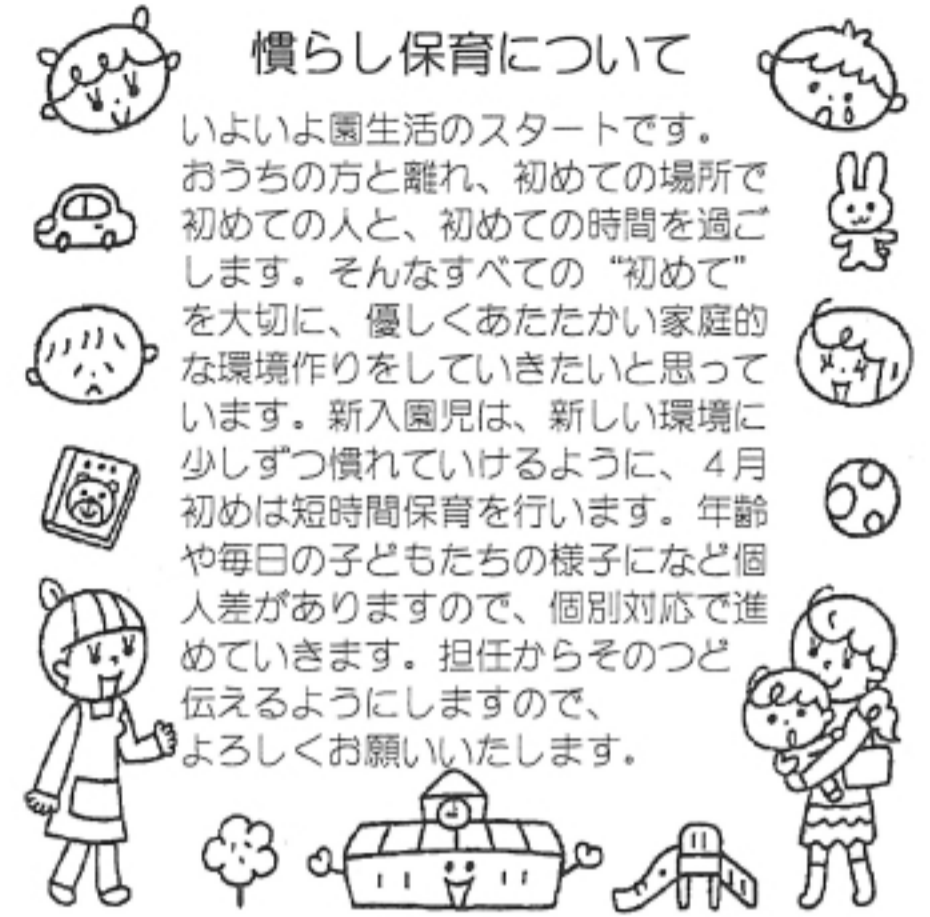 慣らし保育について
いよいよ園生活のスタートです。
おうちの方と離れ、初めての場所で
初めての人と、初めての時間を過ご
します。そんなすべての “初めて”
を大切に、優しくあたたかい家庭的
な環境作りをしていきたいと思って
います。新入園児は、新しい環境に
少しずつ慣れていけるように、４月
初めは短時間保育を行います。年齢
や毎日の子どもたちの様子になど個
人差がありますので、個別対応で進
めていきます。担任からそのつど
伝えるようにしますので、
よろしくお願いいたします。